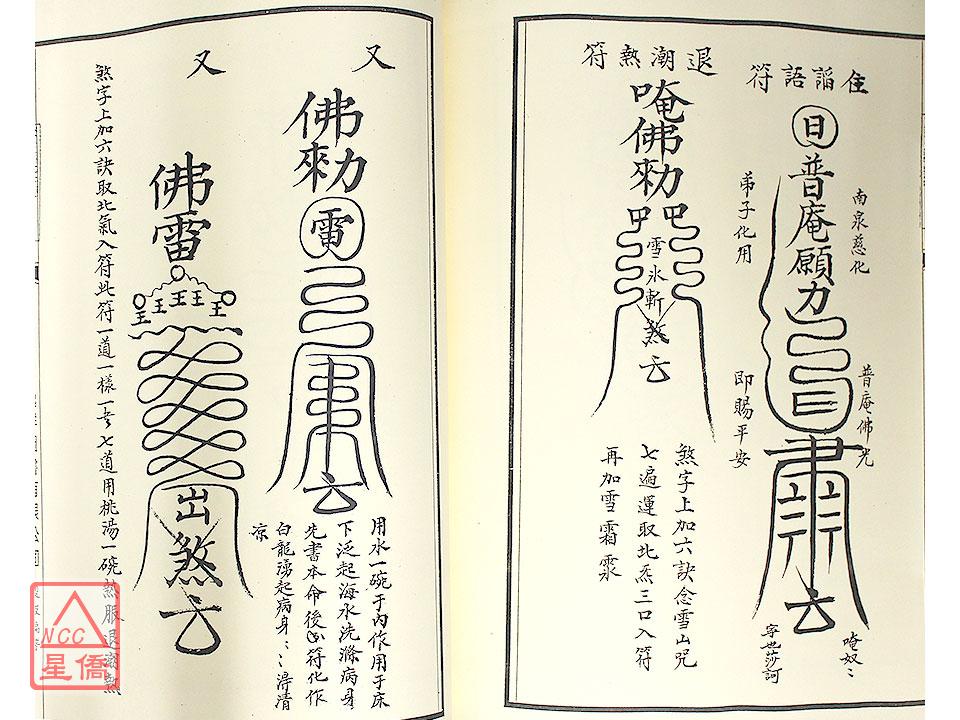 住諂語符
日
普庵願力
南泉慈化
弟子化用
普庵佛光
即賜平安
唵奴〻
寧也莎訶
退潮熱符
唵佛勑
雪氷斬煞
煞字上加六訣念雪山咒
七遍運取北炁三口入符
再加雪霜
又
佛勑
雷
用水一碗于內作用于床
下泛起海水洗滌病身
先書本命後必符化作
白龍湧起病身〻〻淂清
凉
又
佛雷
王王王王王
煞
煞字上加六訣取北氣入符此符一道一樣一書七道用桃湯一碗熱服退潮熱
NCC
星僑